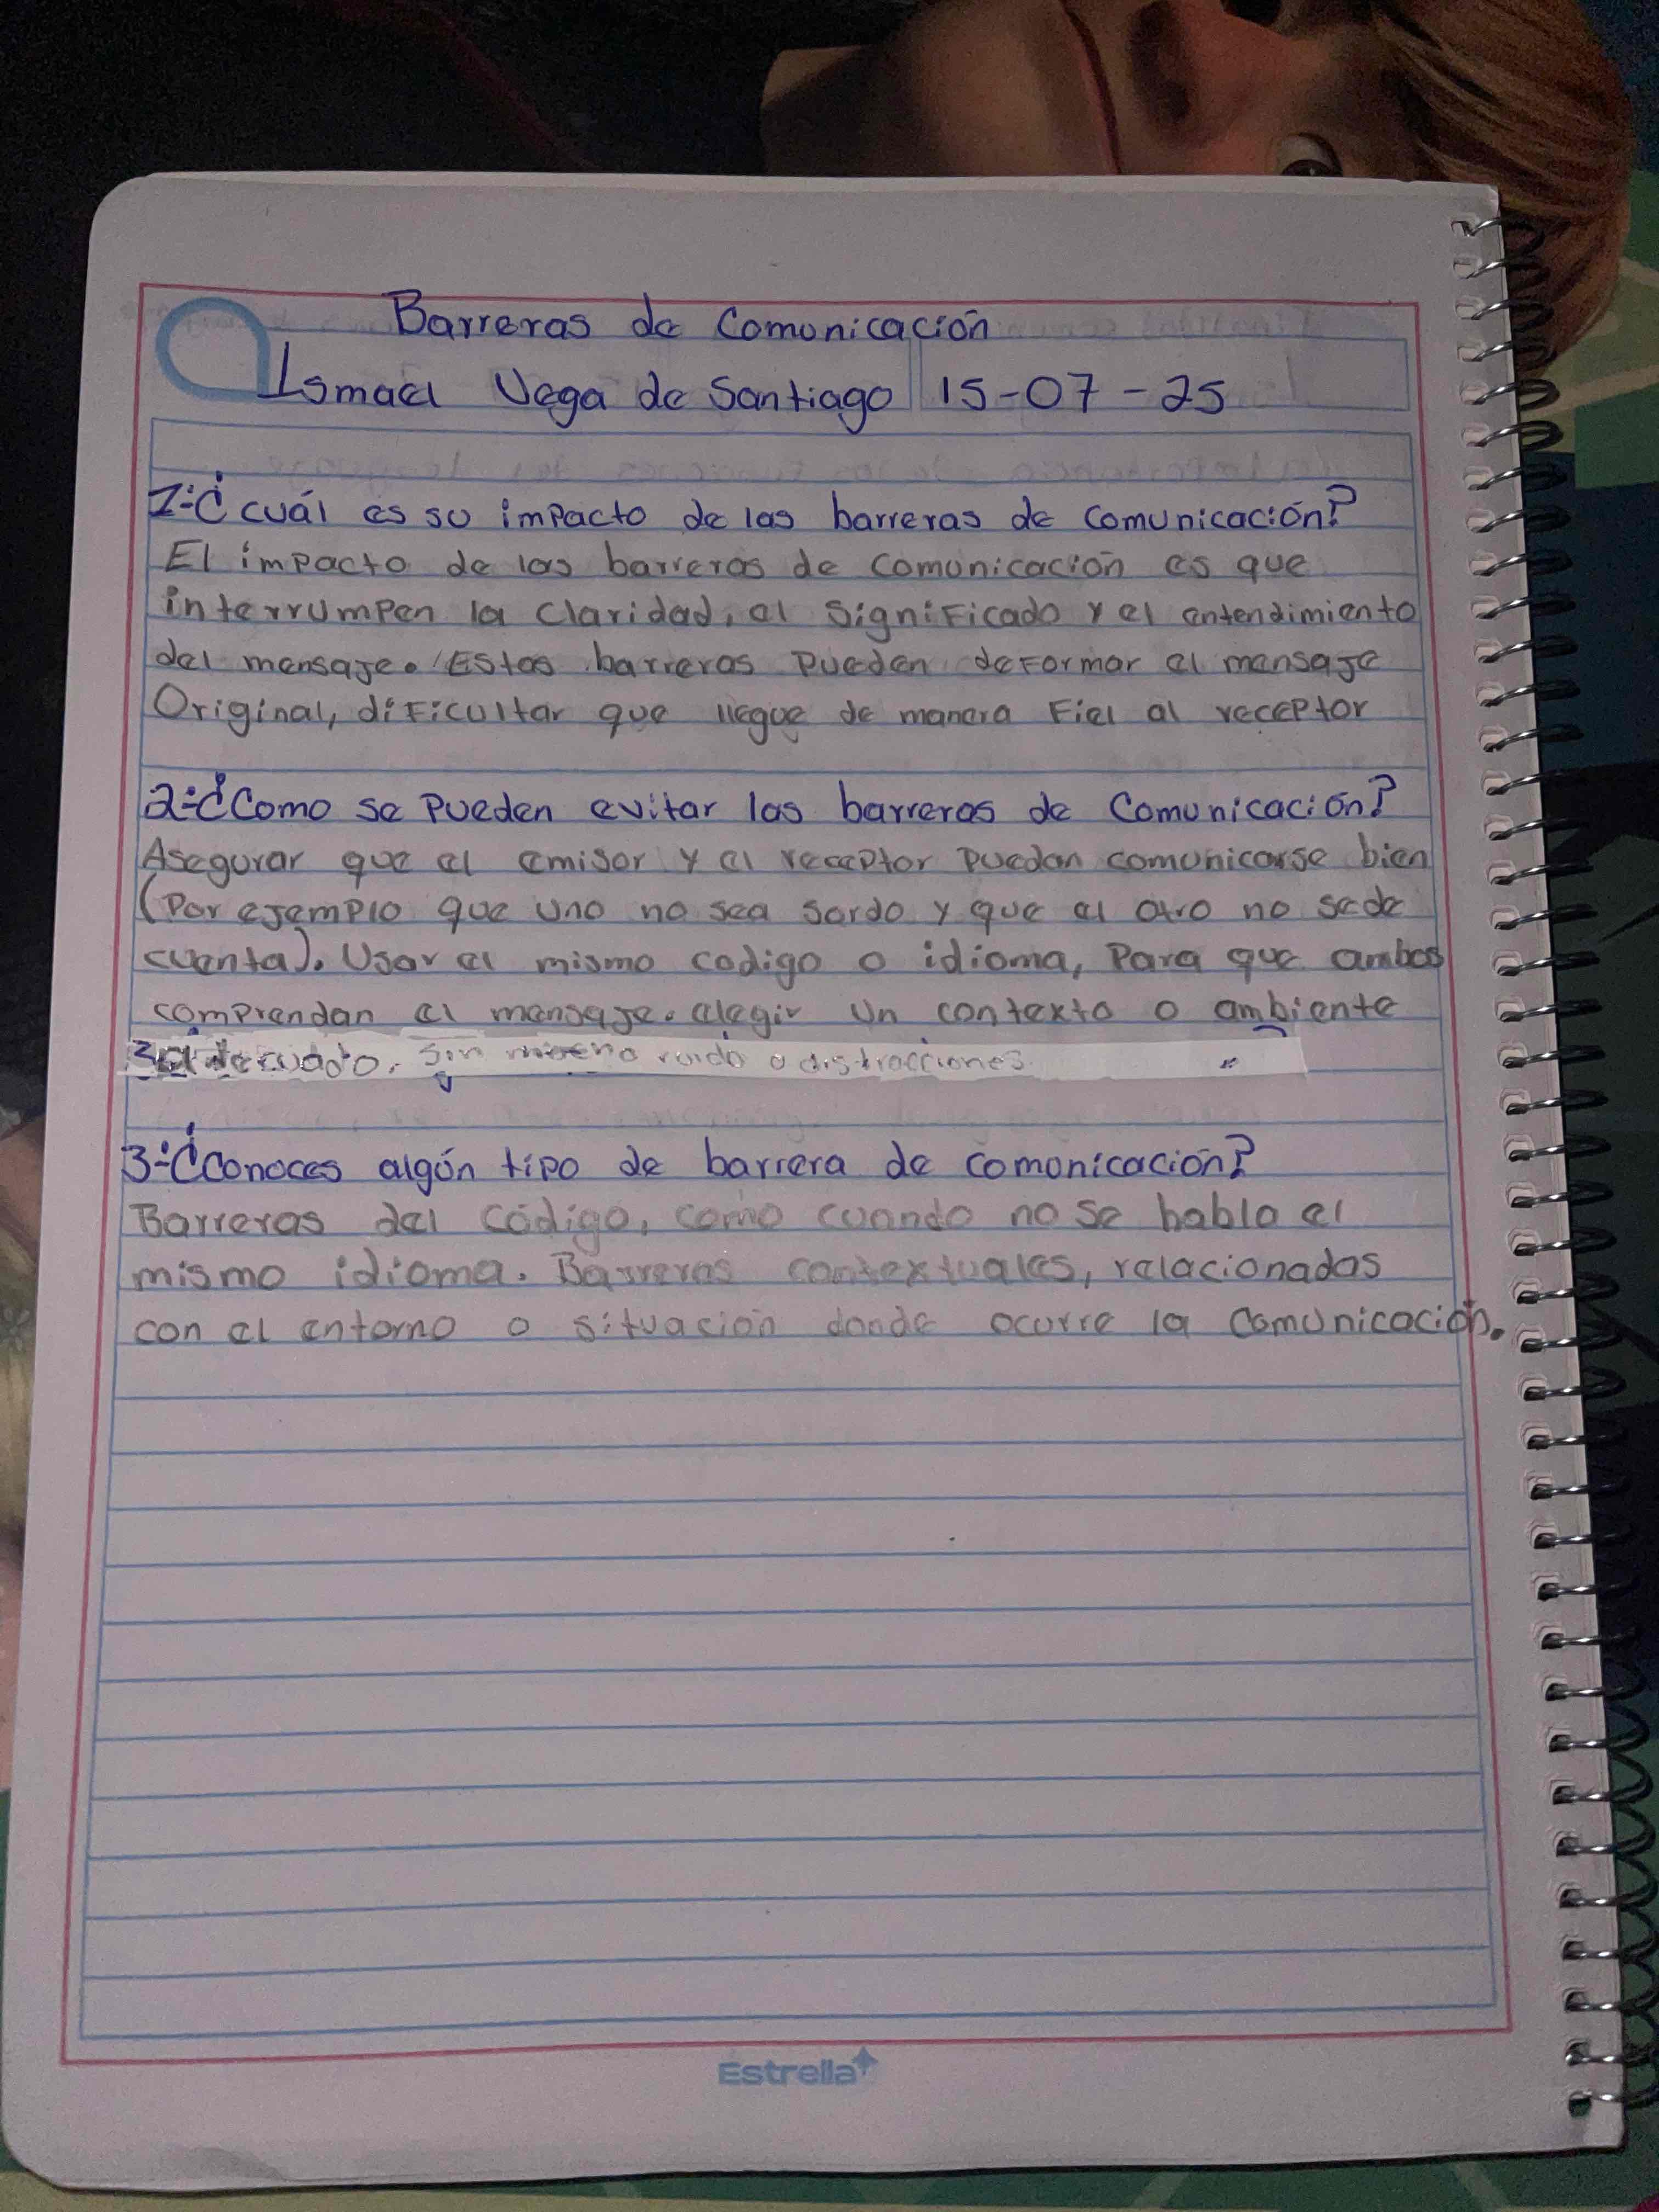 Barreras de Comonicación
Ismael Vega de Santiago 15-07-25
1-¿cuál es su impacto de las barreras de comunicación?
El impacto de las barreras de comonicación es que
interrumpen la claridad, el significado y el entendimiento
del mensaje. Estas barreras pueden deformar el mensaje
Original, dificultar que llegue de manera fiel al receptor
2-¿Como se pueden evitar las barreras de Comonicación?
Asegurar que el emisor y el receptor puedan comunicarse bien
(Por ejemplo que uno no sea sordo y que el otro no se de
cuenta). Usar el mismo codigo o idioma, Para que ambos
comprendan el mensaje. elegir un contexto o ambiente
adecuado. Sin ruido o distracciones
3-¿conoces algún tipo de barrera de comonicación?
Barreras del código, como cuando no se habla el
mismo idioma. Barreras contextuales, relacionadas
con el entorno o situación donde ocurre la comunicación.
Estrella